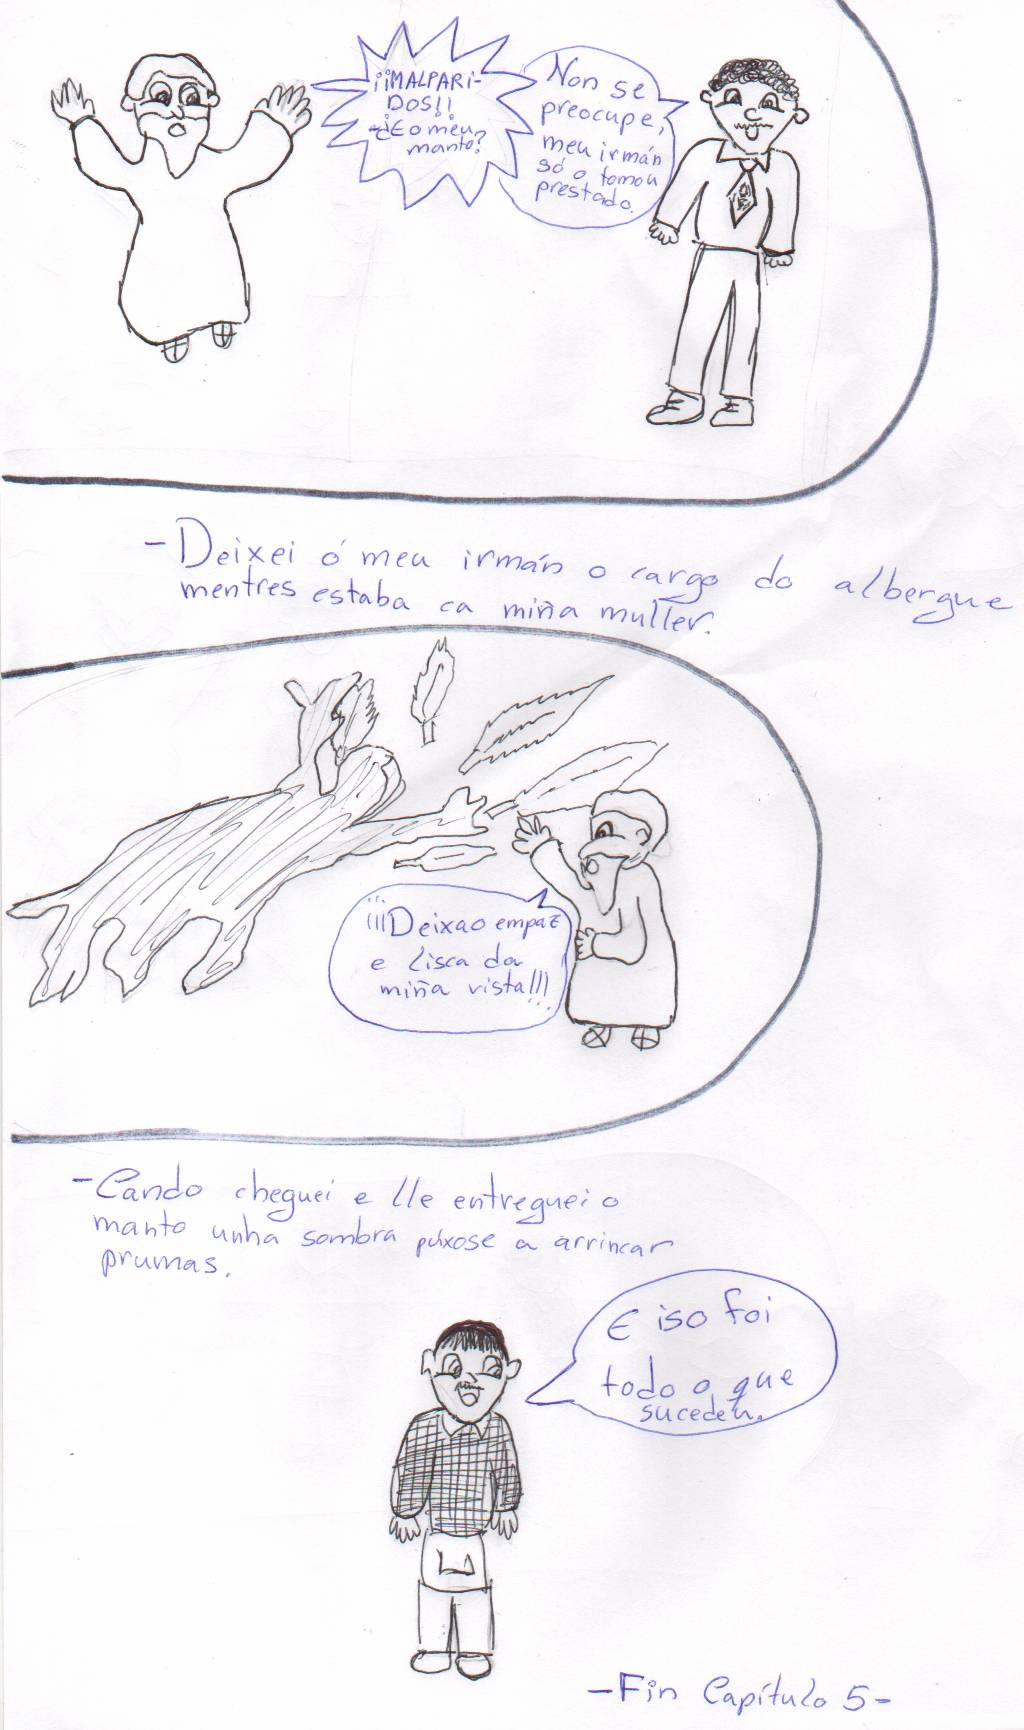 ¡¡MALPARI-
DOS!!
-¿E o meu
manto?
Non se
preocupe,
meu irmán
só o tomou
prestado.
-Deixei ó meu irmán o cargo do albergue
mentres estaba ca miña muller.
¡¡¡Deixao empaz
e lisca da
miña vista!!!
-Cando cheguei e lle entreguei o
manto unha sombra púxose a arrincar
prumas.
E iso foi
todo o que
sucedeu.
-Fin Capítulo 5-